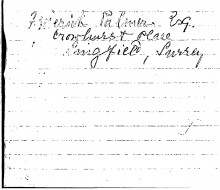 Frederick Palmer Esq.
Crowhurst Place
Lingfield, Surrey